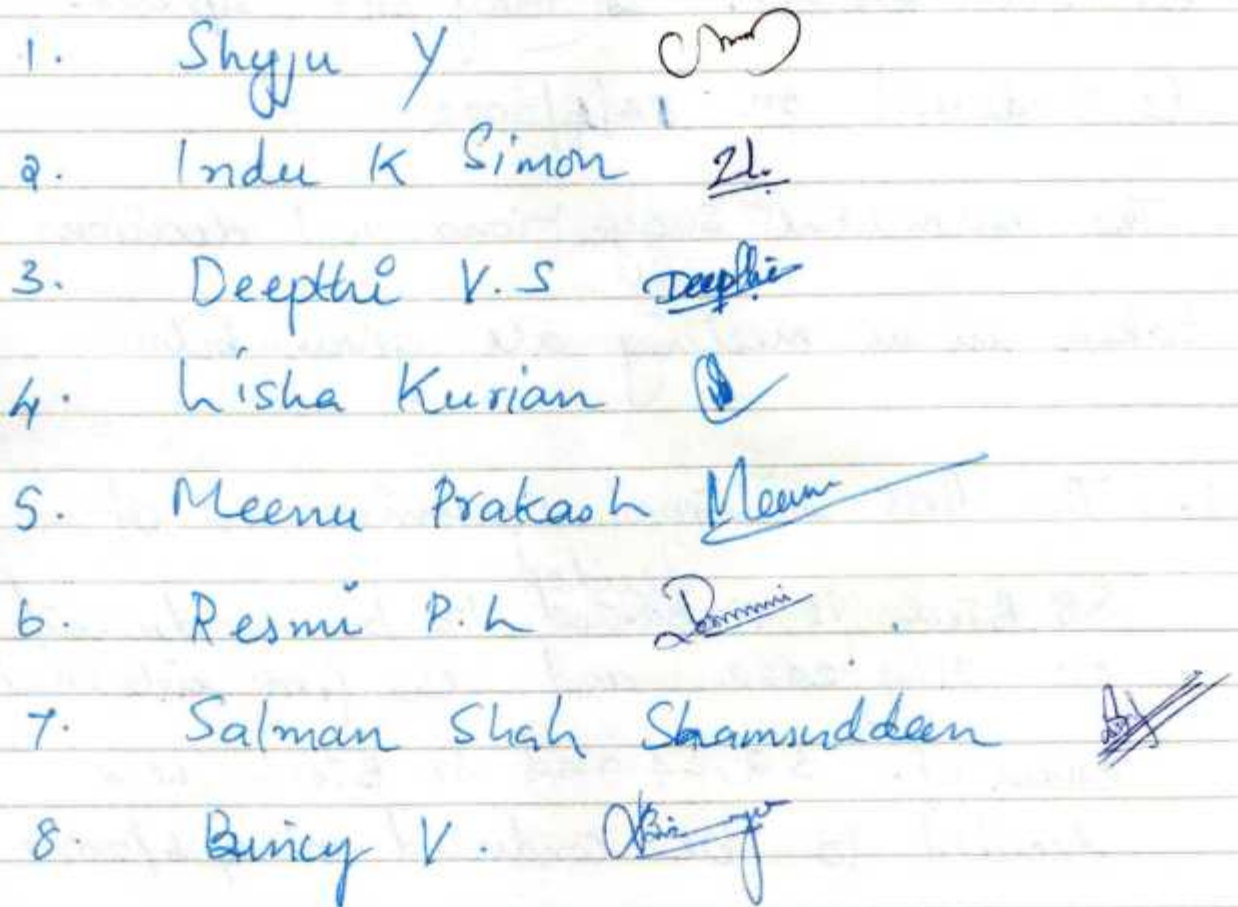 1. Shyju Y
2. Indu K Simon
3. Deepthi V.S Deepthi
4. Lisha Kurian
5. Meenu Prakash Meenu
6. Resmi P.L
7. Salman Shah Shamsuddeen
8. Bincy V.